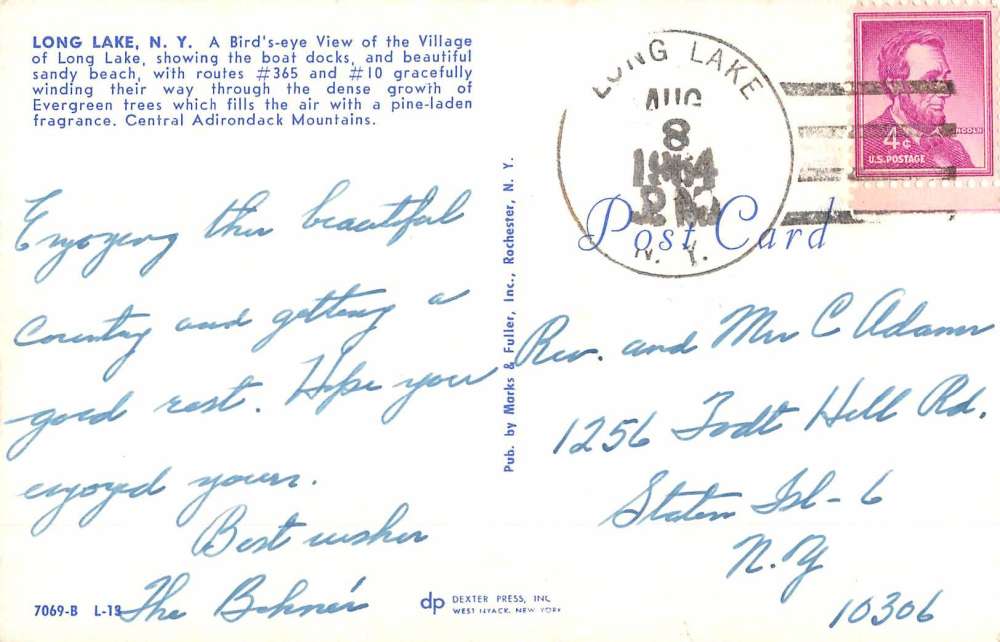 LONG LAKE, N. Y. A Bird's-eye View of the Village
of Long Lake, showing the boat docks, and beautiful
sandy beach, with routes #365 and #10 gracefully
winding their way through the dense growth of
Evergreen trees which fills the air with a pine-laden
fragrance. Central Adirondack Mountains.
Enjoying this beautiful
country and getting a
good rest. Hope you
enjoyed yours.
Best wishes
The
7069-B L-13
Pub. by Marks & Fuller, Inc., Rochester, N. Y.
dp DEXTER PRESS, INC.
WEST NYACK, NEW YORK
LONG LAKE
AUG
8
1964
N. Y.
4¢
LINCOLN
U.S. POSTAGE
Post Card
Rev. and Mrs C Adams
1256 Todt Hill Rd.
Staten Isl - 6
N.Y
10306